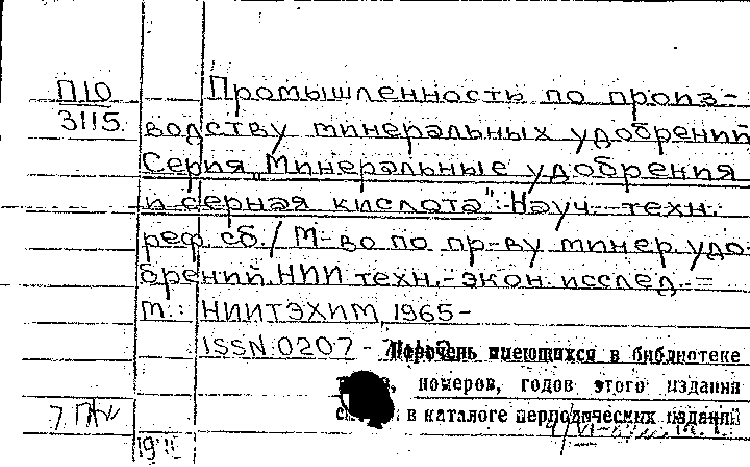 П10 Промышленность по произ-
3115. водству минеральных удобрений
Серия „Минеральные удобрения
и серная кислота": Науч.-техн.
реф. сб. / М-во по пр-ву минер. удо-
брений. НИИ техн.-экон. исслед. =
М.: НИИТЭХИМ, 1965-
ISSN 0207 - Перечень имеющихся в библиотеке
номеров, годов этого издания
в каталоге периодических изданий